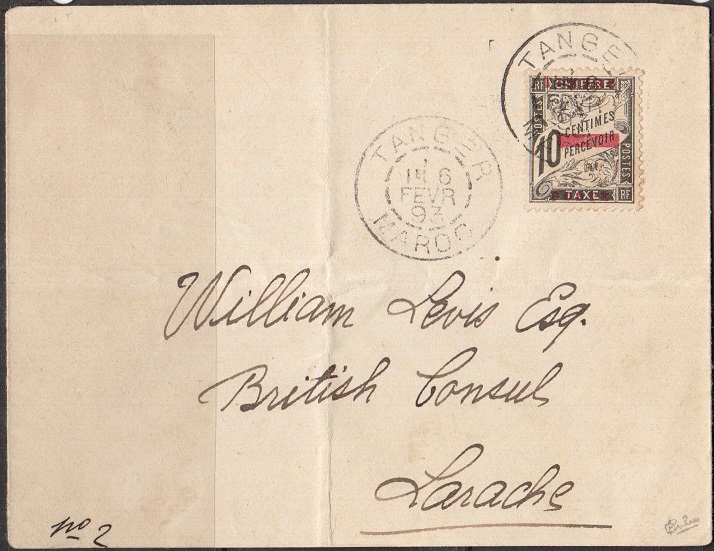 TANGER
1E 6
FEVR
93
MAROC
TANGE
RF CHIFFRE
POSTES
10 CENTIMES
PERCEVOIR
POSTES
TAXE RF
William Levis Esq.
British Consul
Larache
no 2